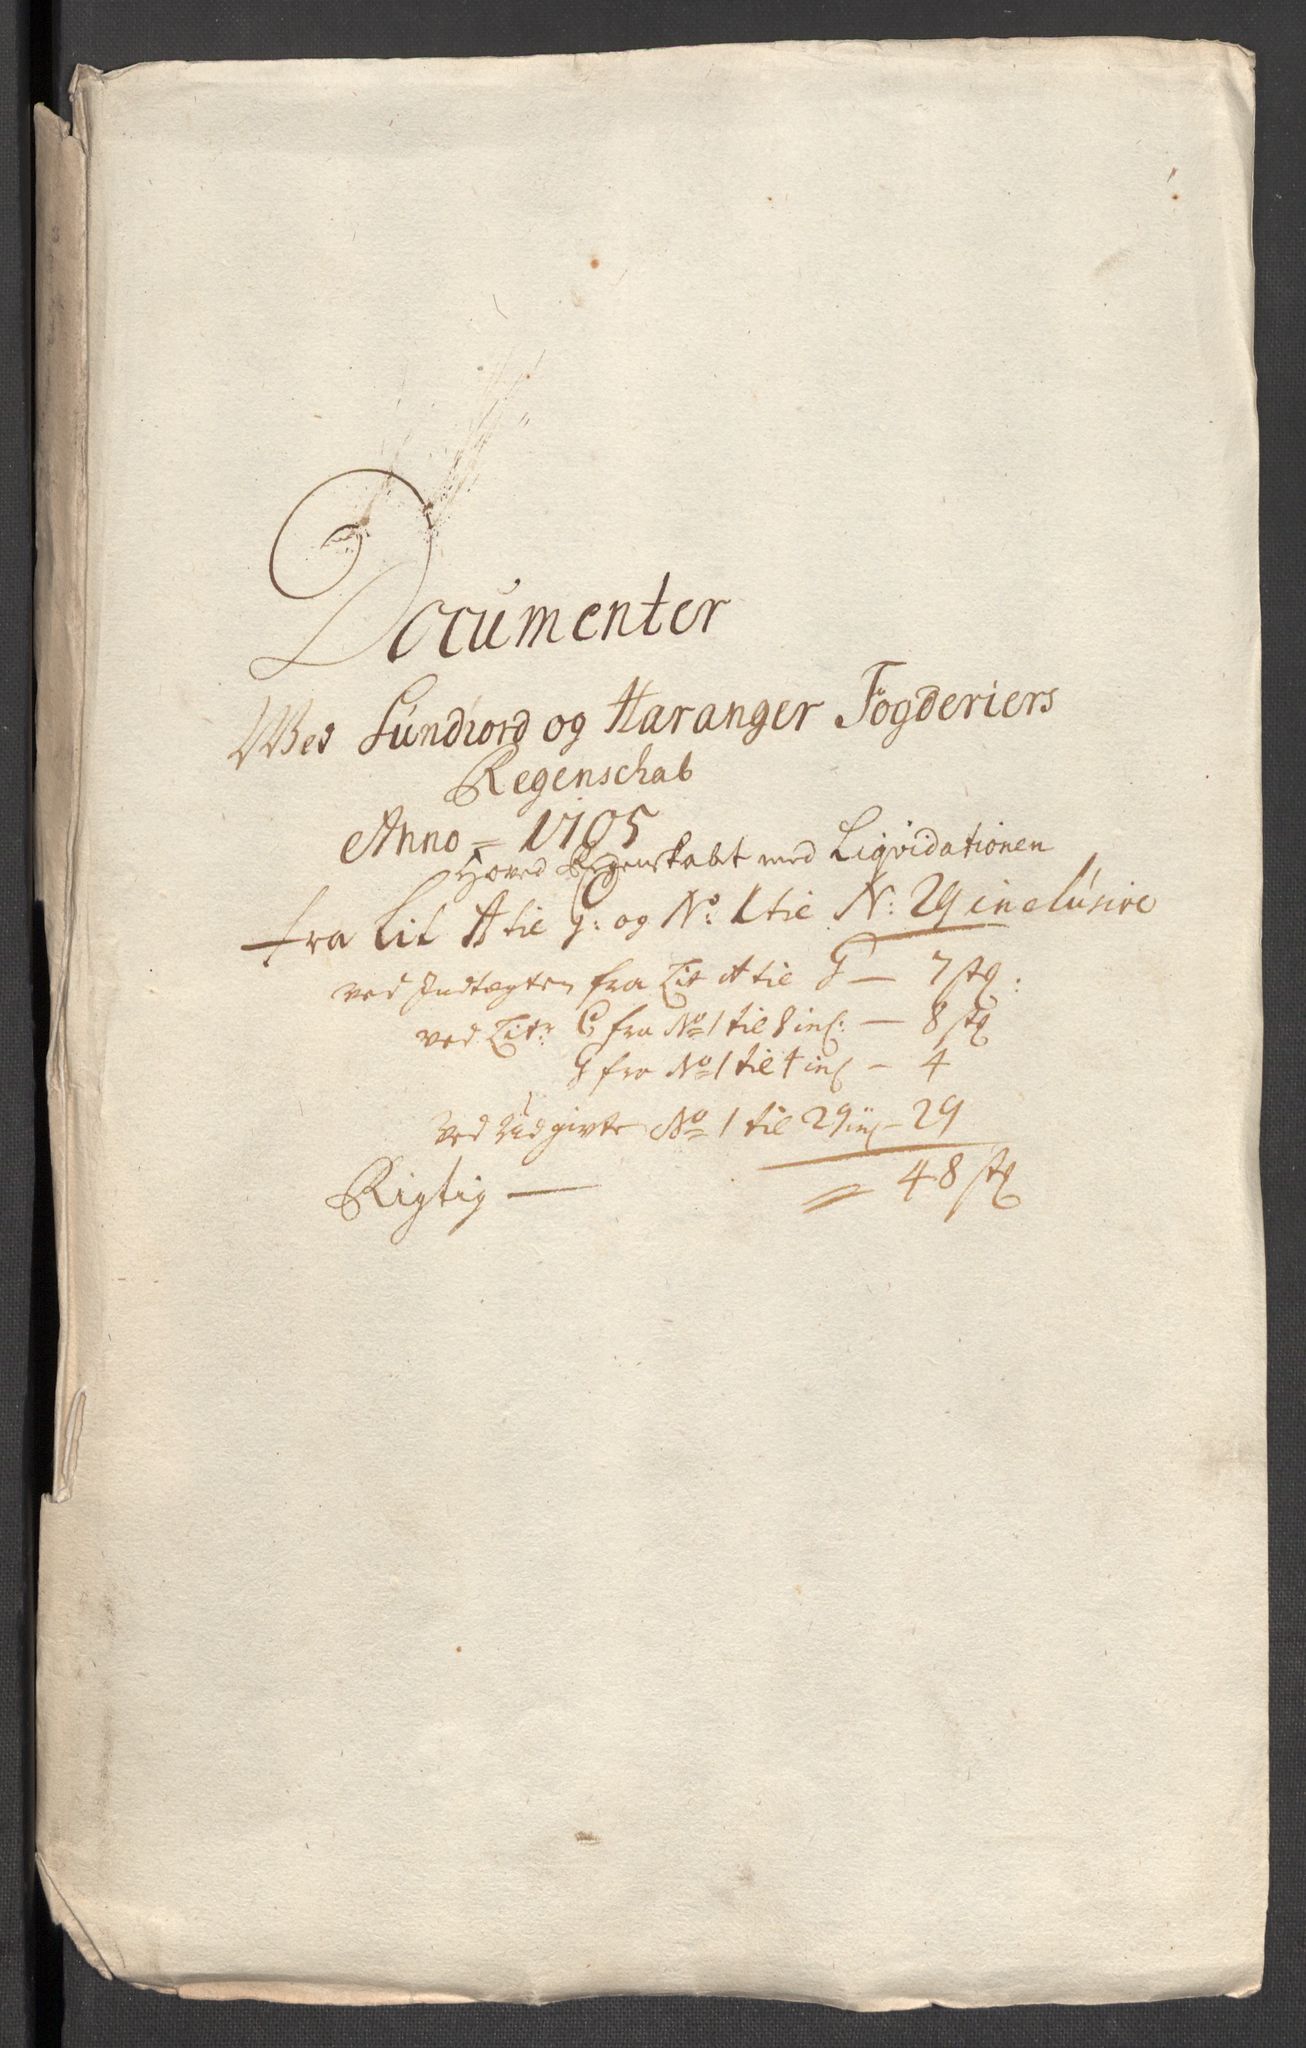 Documenter
Wed Sundiord og Haranger Fogderiers
Regenschab
Anno = 1705
Hoved Regenskabet med Liqvidationen
fra Lit A til G: og No: 1 til N: 29 inclusive
ved Indtægten fra Lit A til G — 7 stk:
ved Litr C fra No 1 til 8 incl: — 8 stk
G fra No 1 til 4 incl — 4
Ved Udgivte No 1 til 29 incl — 29
Rigtig — = 48 stk